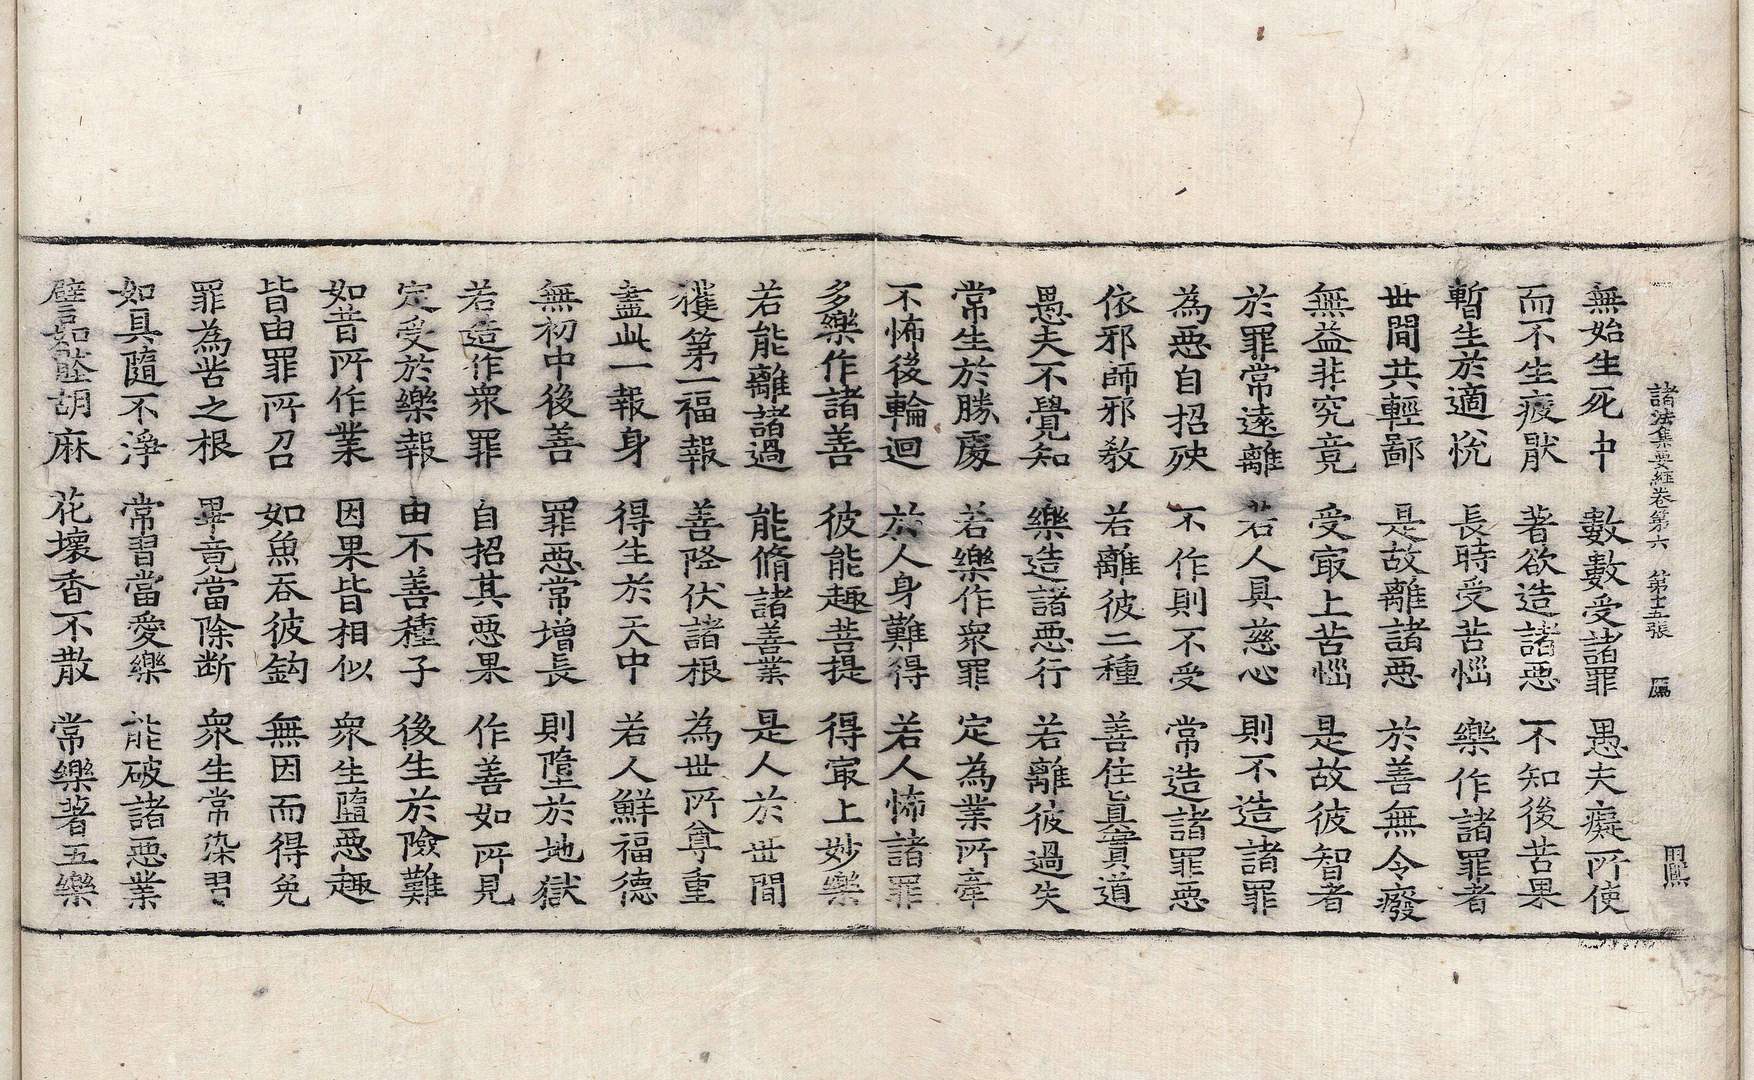 諸法集要經卷第六 第十五張
無始生死中 數數受諸罪 愚夫癡所使
而不生疲猒 著欲造諸惡 不知後苦果
暫生於適恱 長時受苦惱 樂作諸罪者
世間共輕鄙 是故離諸惡 於善無令癈
無益非究竟 受冣上苦惱 是故彼智者
於罪常遠離 若人具慈心 則不造諸罪
為惡自招殃 不作則不受 常造諸罪惡
依邪師邪教 若離彼二種 善住真實道
愚夫不覺知 樂造諸惡行 若離彼過失
常生於勝處 若樂作衆罪 定為業所牽
不怖後輪迴 於人身難得 若人怖諸罪
多樂作諸善 彼能趣菩提 得冣上妙樂
若能離諸過 能脩諸善業 是人於世間
獲第一福報 善降伏諸根 為世所尊重
盡此一報身 得生於天中 若人鮮福德
無初中後善 罪惡常增長 則墮於地獄
若造作衆罪 自招其惡果 作善如所見
定受於樂報 由不善種子 後生於險難
如昔所作業 因果皆相似 衆生墮惡趣
皆由罪所召 如魚吞彼鈎 無因而得免
罪為苦之根 畢竟當除断 衆生常染習
如具隨不淨 常習當愛樂 能破諸惡業
譬如䕃胡麻 花壞香不散 常樂著五樂